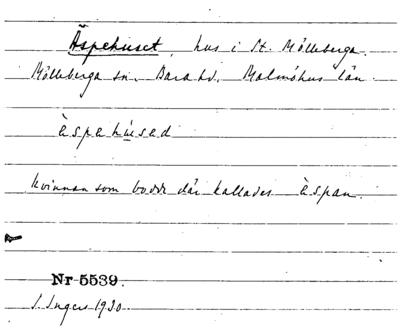 Äspehuset, hus i St. Mölleberga.
Mölleberga sn. Bara hd. Malmöhus län.
àspehúsed
Kvinnan som bodde där kallades àspan.
Nr 5539.
I. Ingers 1930